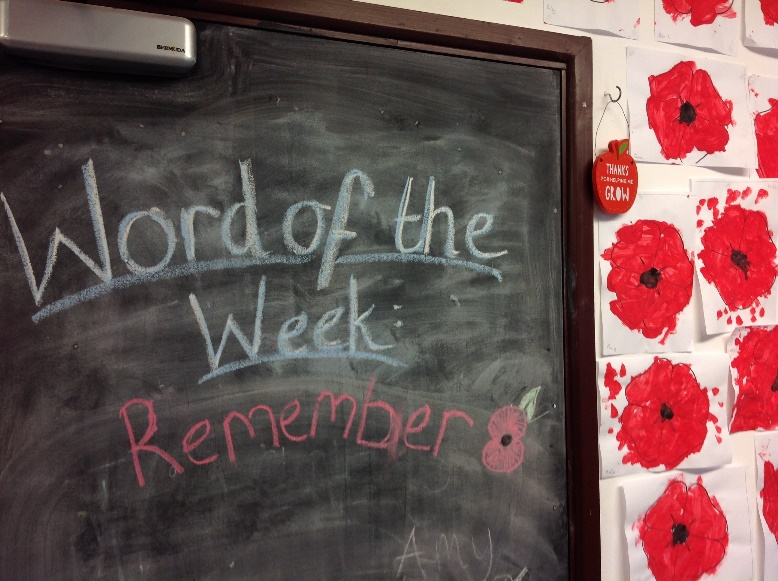 BRIKUDA
Word of the
Week:
Remember
Amy
THANKS
FOR HELPING ME
GROW